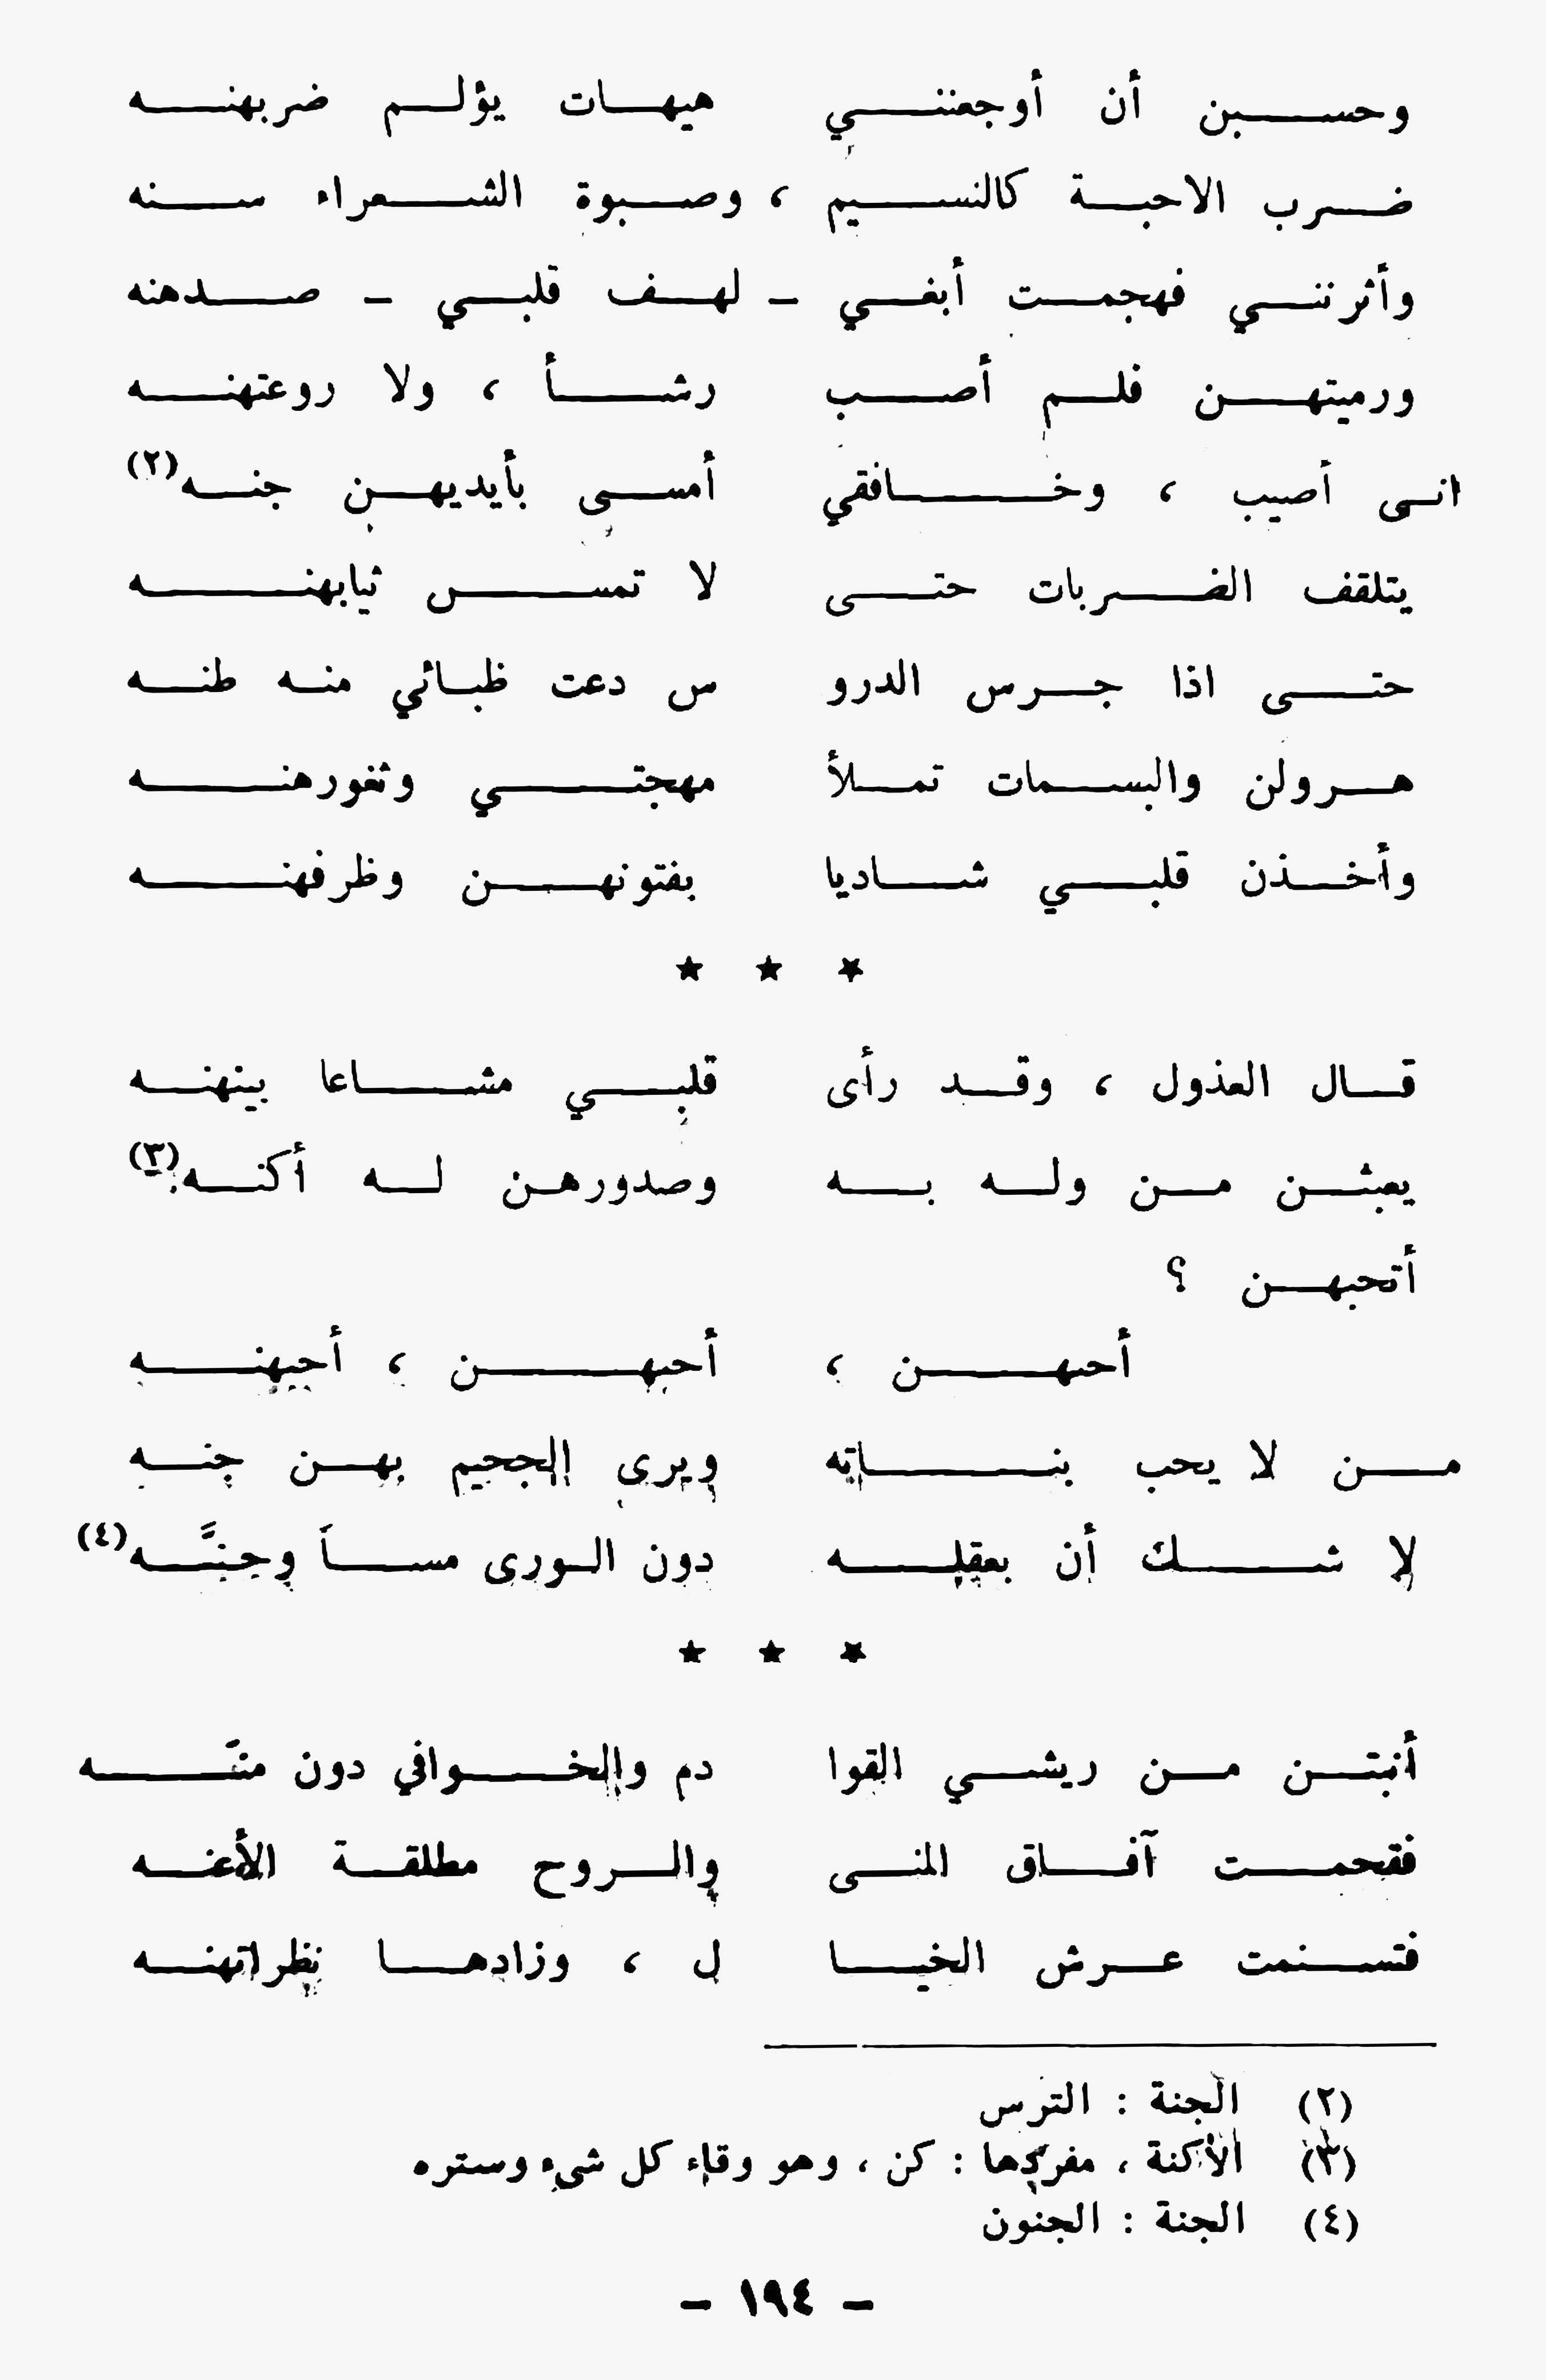 وحسبن أن أوجعنني هيهات يؤلم ضربهنه
ضرب الاحبة كالنسيم ، وصبوة الشعراء سنه
وأثرنني فهجمت أبغي - لهف قلبي - صدهنه
ورميتهن فلم أصب رشأ ، ولا روعتهنه
انى أصيب ، وخافقي أمسى بأيديهن جنه (٢)
يتلقف الضربات حتى لا تمس ثيابهنه
حتى اذا جرس الدرو س دعت ظبائي منه طنه
هرولن والبسمات تملأ مهجتي وثغورهنه
وأخذن قلبي شاديا بفتونهن وظرفهنه
★ ★ ★
قال العذول ، وقد رأى قلبي مشاعا بينهنه
يعبثن من وله به وصدورهن له أكنه (٣)
أتحبهن ؟
أحبهن ، أحبهن ، أحبهنه
من لا يحب بناته ويرى الجحيم بهن جنه
لا شك أن بعقله دون الورى مساً وجنَّه (٤)
★ ★ ★
أنبتن من ريشي القوا دم والخوافي دون منّه
فقحمت آفاق المنى والروح مطلقة الأعنه
فتسنمت عرش الخيا ل ، وزادها نظراتهنه
(٢) الجنة : الترس
(٣) الأكنة ، مفردها : كن ، وهو وقاء كل شيء وستره
(٤) الجنة : الجنون
- ١٩٤ -